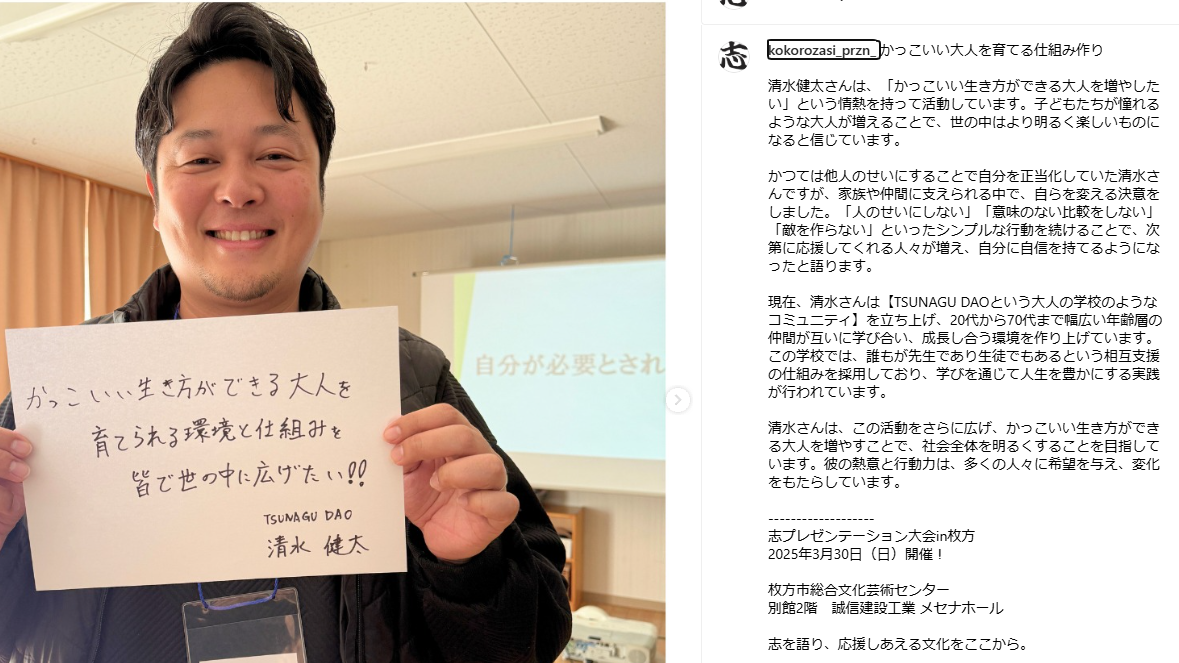 かっこいい生き方ができる大人を
育てられる環境と仕組みを
皆で世の中に広げたい!!
TSUNAGU DAO
清水 健太
自分が必要とされ
志
kokorozasi_przn_ かっこいい大人を育てる仕組み作り
清水健太さんは、「かっこいい生き方ができる大人を増やした
い」という情熱を持って活動しています。子どもたちが憧れる
ような大人が増えることで、世の中はより明るく楽しいものに
なると信じています。
かつては他人のせいにすることで自分を正当化していた清水さ
んですが、家族や仲間に支えられる中で、自らを変える決意を
しました。「人のせいにしない」「意味のない比較をしない」
「敵を作らない」といったシンプルな行動を続けることで、次
第に応援してくれる人々が増え、自分に自信を持てるようにな
ったと語ります。
現在、清水さんは【TSUNAGU DAOという大人の学校のような
コミュニティ】を立ち上げ、20代から70代まで幅広い年齢層の
仲間が互いに学び合い、成長し合う環境を作り上げています。
この学校では、誰もが先生であり生徒でもあるという相互支援
の仕組みを採用しており、学びを通じて人生を豊かにする実践
が行われています。
清水さんは、この活動をさらに広げ、かっこいい生き方ができ
る大人を増やすことで、社会全体を明るくすることを目指して
います。彼の熱意と行動力は、多くの人々に希望を与え、変化
をもたらしています。
-------------------
志プレゼンテーション大会in枚方
2025年3月30日（日）開催！
枚方市総合文化芸術センター
別館2階　誠信建設工業 メセナホール
志を語り、応援しあえる文化をここから。